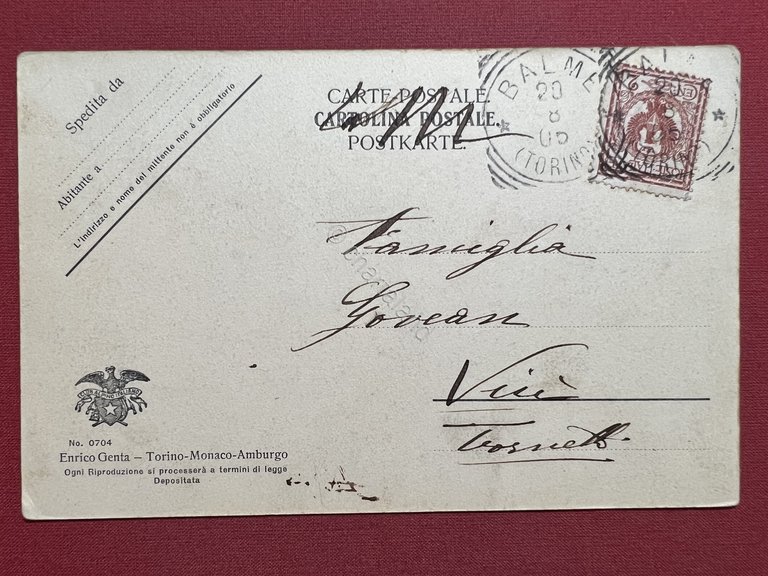 Spedita da
Abitante a
L'indirizzo e nome del mittente non è obbligatorio
CARTE POSTALE.
CARTOLINA POSTALE.
POSTKARTE.
BALME
20
8
05
(TORINO)
Famiglia
Govean
Viù
Tornetti
CLUB ALPINO ITALIANO
No. 0704
Enrico Genta – Torino-Monaco-Amburgo
Ogni Riproduzione si processerà a termini di legge
Depositata